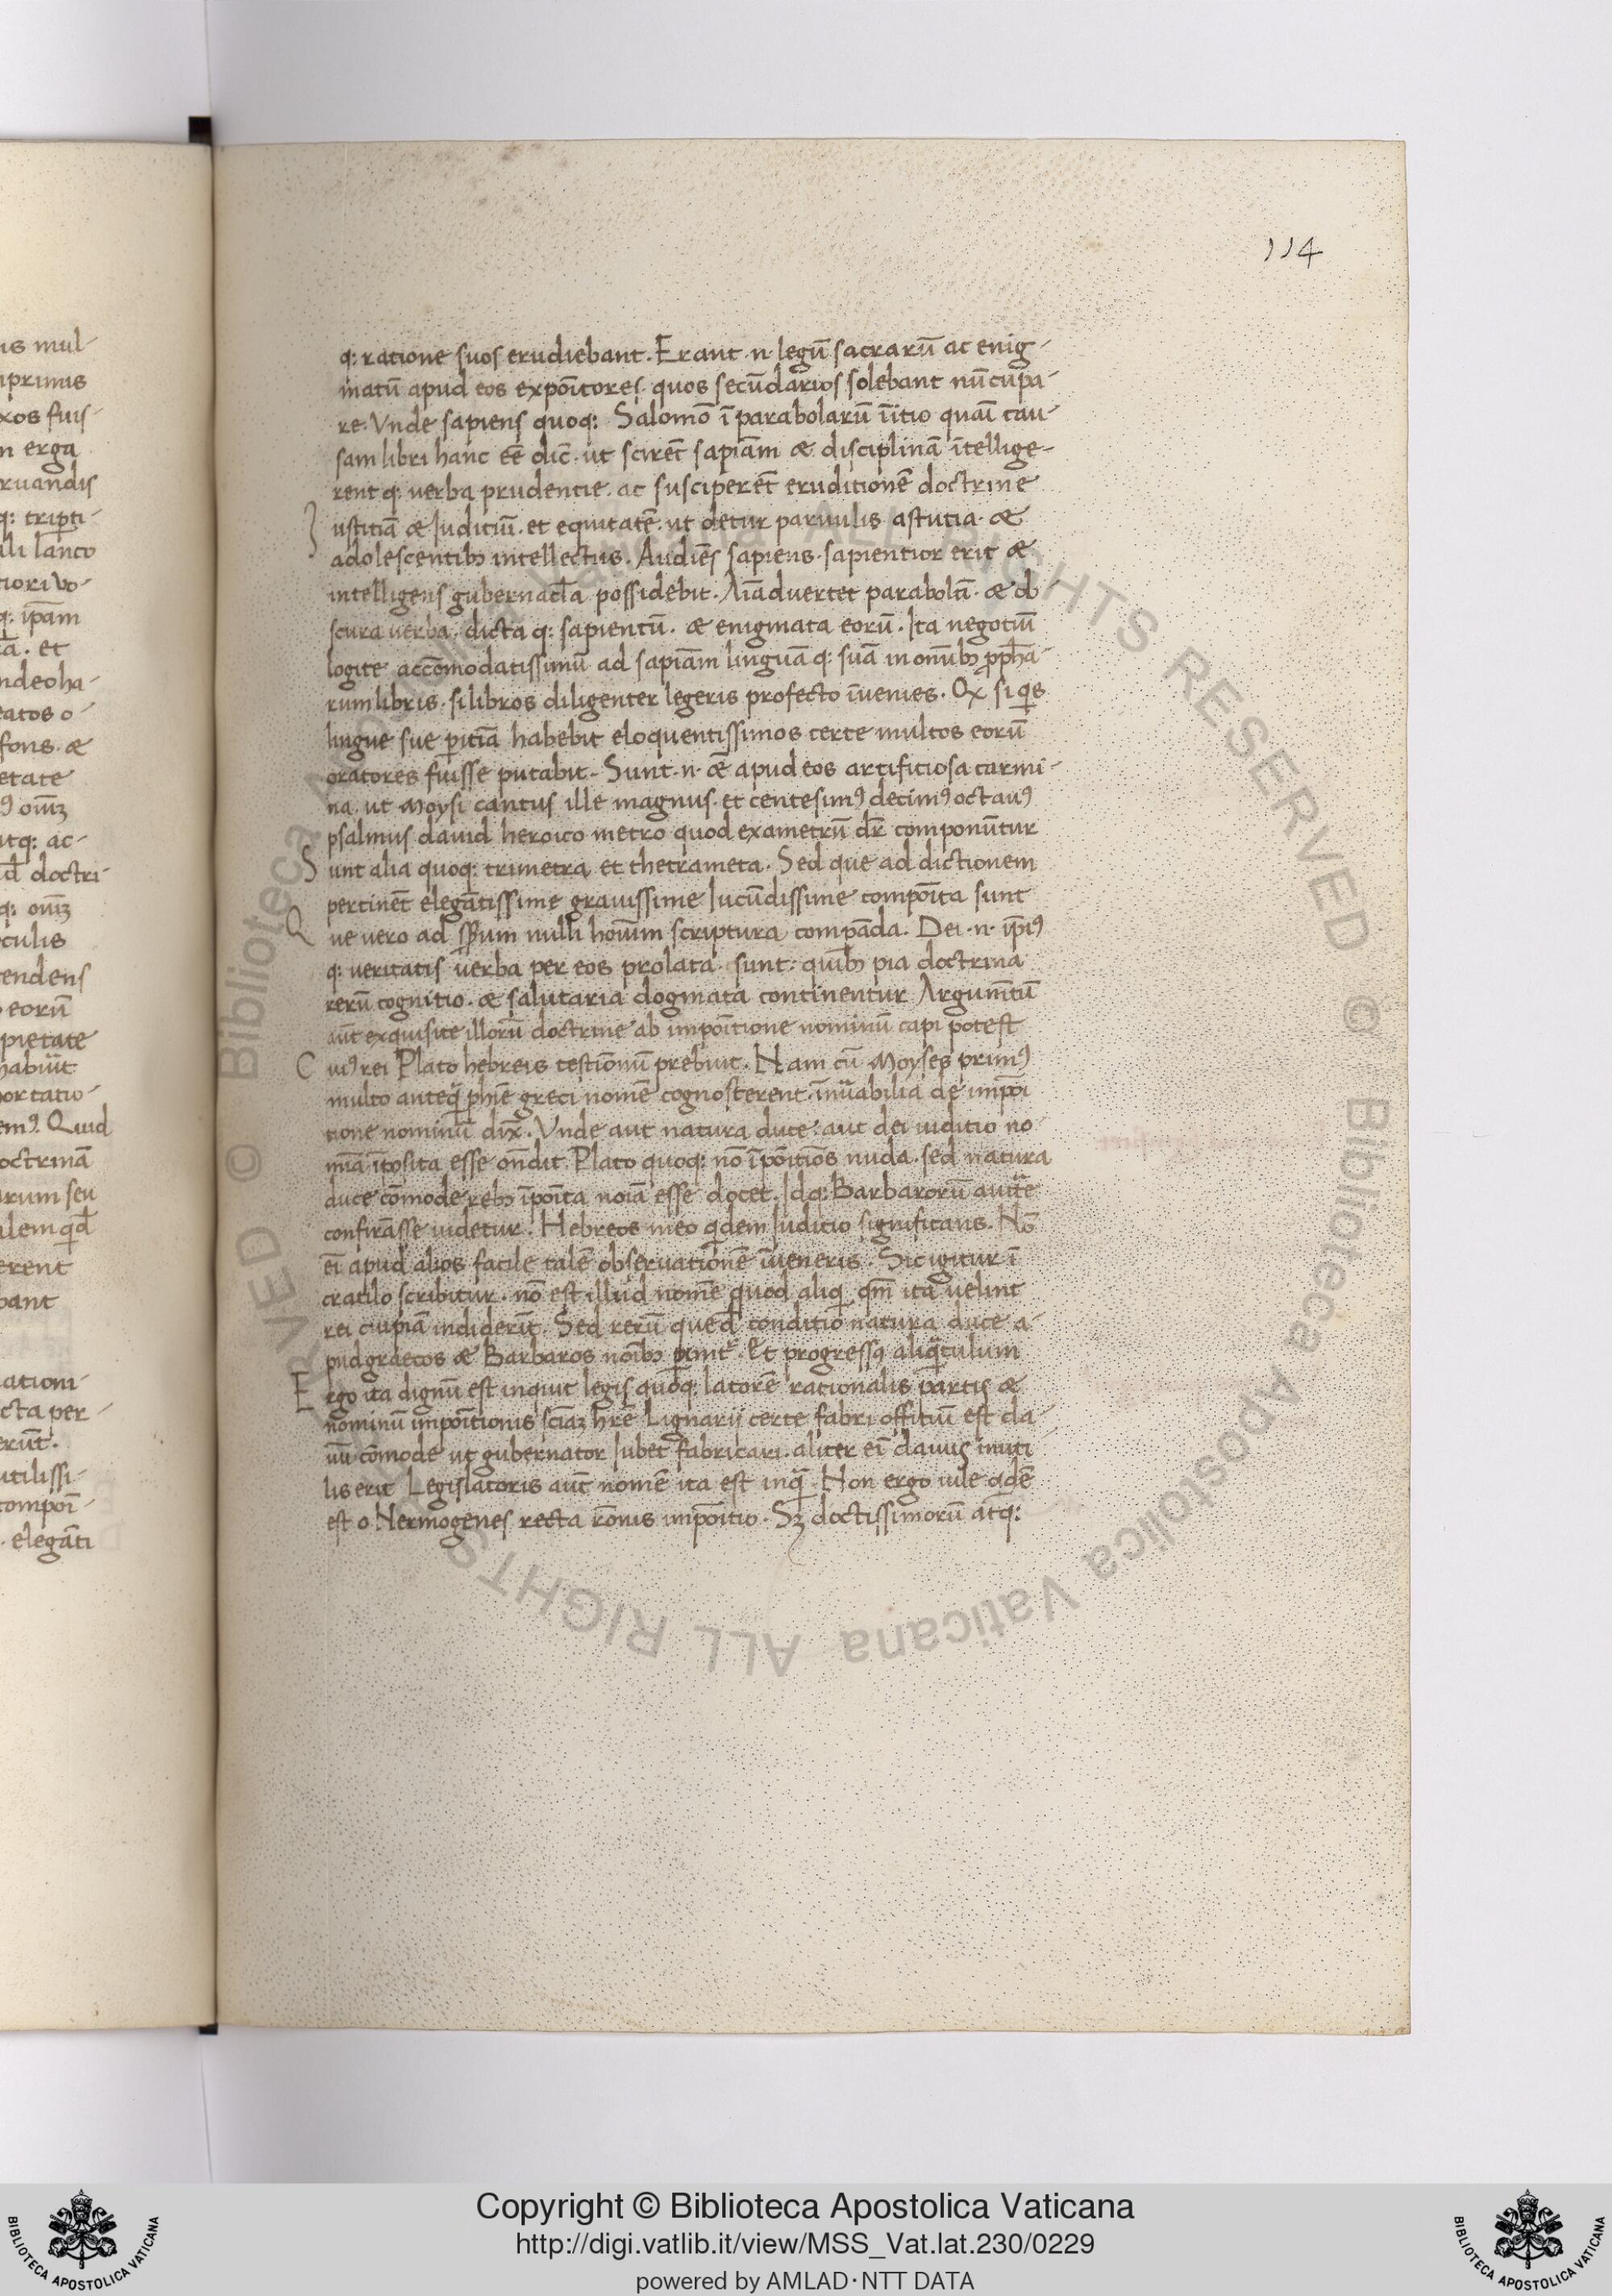 114
q: ratione suos erudiebant. Erant .n. legū sacrarū ac enig-
matū apud eos expoītores. quos secūdarios solebant nūcupa-
re. Vnde sapiens quoq: Salomō ī parabolarū īitio quaī cau-
sam libri hanc eē dic̄. ut scirēt sapiām & disciplinā ītellige-
rent q: uerba prudentie. ac susciperēt eruditionē doctrine
Iustitiā & Iuditiū. et equitatē. ut detur paruulis astutia. &
adolescentibꝫ intellectus. Audiēs sapiens. sapientior erit &
intelligens gubernacl̄a possidebit. Aīaduertet parabolā. & ob-
scura uerba. dicta q: sapientū. & enigmata eorū. Ita negotiū
logite accōmodatissimū ad sapiām linguā q: suā in omībꝫ pp̄hā-
rum libris. si libros diligenter legeris profecto īuenies. Qꝫ si qͥs
lingue sue ꝑitiā habebit eloquentissimos certe multos eorū
oratores fuisse putabit. Sunt .n. & apud eos artifitiosa carmi-
na. ut Moysi cantus ille magnus. et centesimꝰ decimꝰ octauꝰ
psalmus dauid heroico metro quod exametrū dr̄ componūtur
Sunt alia quoq: trimetra et thetrameta. Sed que ad dictionem
pertinēt elegātissime grauissime Iucūdissime compoīta sunt
Que uero ad sp̄um nulli hoīum scriptura compāda. Dei .n. ip̄iꝰ
q: ueritatis uerba per eos prolata sunt: quibꝫ pia doctrina
rerū cognitio. & salutaria dogmata continentur Argumītū
aūt exquisite illorū doctrine ab impoītione nominū capi potest
Cuiꝰ rei Plato hebreis testiōnīū prebuit. Nam cū Moyses primꝰ
multo anteq̄ phīe greci nomē cognoscerent. īnūabilia de impoī
tione nominū dix̄. Vnde aut natura duce: aut dei iuditio no
mīa īposita esse on̄dit. Plato quoq: nō īpoītiōs nuda. sed natura
duce cōmode rebꝫ īpoīta noīa esse docet. Idq: Barbarorū auc̄te
confirāsse uidetur: Hebreos meo qͥdem Iuditio significans. Nō
eī apud alios facile talē obseruationē īueneris. Sic igitur ī
cratilo scribitur. nō est illud nomē quod aliqͥ qm̄ ita uelint
rei cuipiā indiderīt. Sed rerū qued̄ conditio natura duce a-
pud graecos & Barbaros noībꝫ
Et progressꝰ aliqͣtulum
Ergo ita dignū est inquit legis quoq: latorē rationalis partis &
nominū impoītionis sciāꝫ hr̄e Lignarij certe fabri offitiū est cla-
uū cōmode ut gubernator Iubet fabricari. aliter eī clauus inuti
lis erit Legislatoris aūt nomē ita est inqͣ. Non ergo uile qͥdē
est o Hermogenes recta rōnis impoītio. Sꝫ doctissimorū atq:
us mul-
xos fuis-
m erga
ruandis
q: triꝑti-
q: ip̄am
ndeoha-
fons. &
etate
tq: ac-
doctri-
culis
tendens
eorū
pietate
emꝰ. Quid
octrinā
rum seu
erent
bant
cta per-
erūt.
utilissi-
compoī-
elegāti
Copyright © Biblioteca Apostolica Vaticana
http://digi.vatlib.it/view/MSS_Vat.lat.230/0229
powered by AMLAD·NTT DATA
BIBLIOTECA APOSTOLICA VATICANA
BIBLIOTECA APOSTOLICA VATICANA
© Biblioteca Apostolica Vaticana ALL RIGHTS RESERVED © Biblioteca Apostolica Vaticana ALL RIGHTS RESERVED